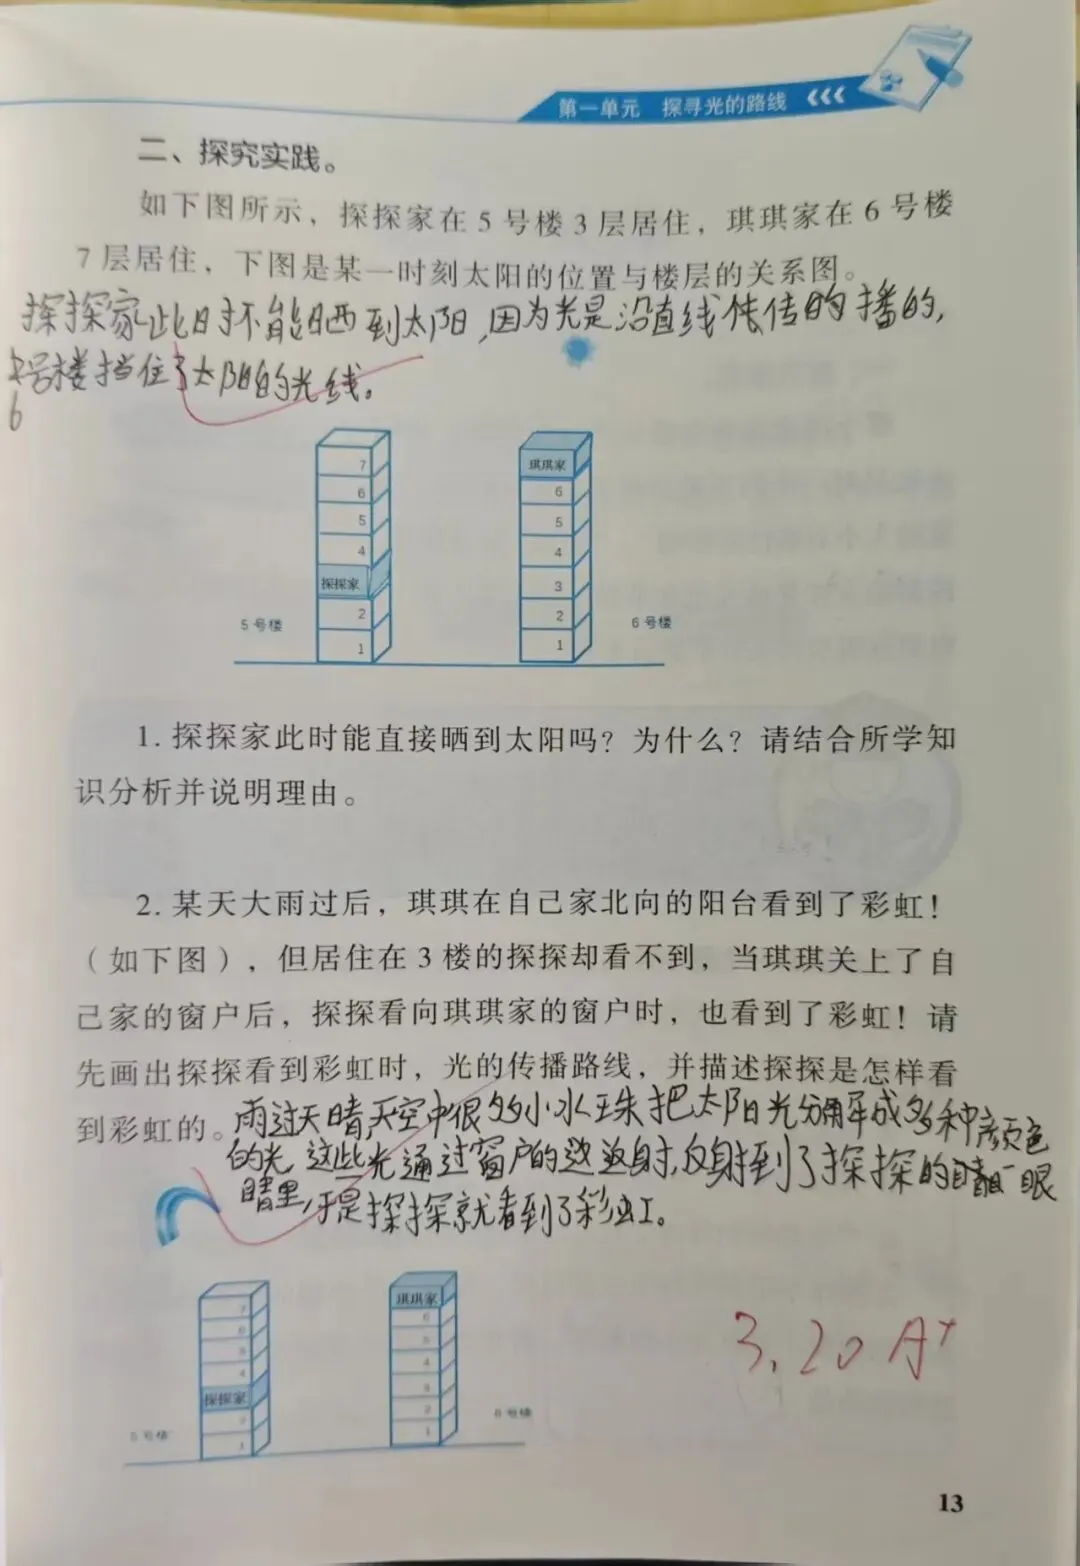 第一单元 探寻光的路线
二、探究实践。
如下图所示，探探家在5号楼3层居住，琪琪家在6号楼
7层居住，下图是某一时刻太阳的位置与楼层的关系图。
探探家此时不能晒到太阳，因为光是沿直线传的播的，
号楼挡住了太阳的光线。
6
7
6
5
4
探探家
2
1
5号楼
琪琪家
6
5
4
3
2
1
6号楼
1. 探探家此时能直接晒到太阳吗？为什么？请结合所学知
识分析并说明理由。
2. 某天大雨过后，琪琪在自己家北向的阳台看到了彩虹！
（如下图），但居住在3楼的探探却看不到，当琪琪关上了自
己家的窗户后，探探看向琪琪家的窗户时，也看到了彩虹！请
先画出探探看到彩虹时，光的传播路线，并描述探探是怎样看
到彩虹的。
雨过天晴天空中很多小水珠把太阳光分解成多种颜色
的光 这些光通过窗户的边返射，反射到了探探的眼
睛里，于是探探就看到了彩虹。
7
6
5
4
探探家
2
1
5号楼
琪琪家
6
5
4
3
2
1
6号楼
3.20 A+
13